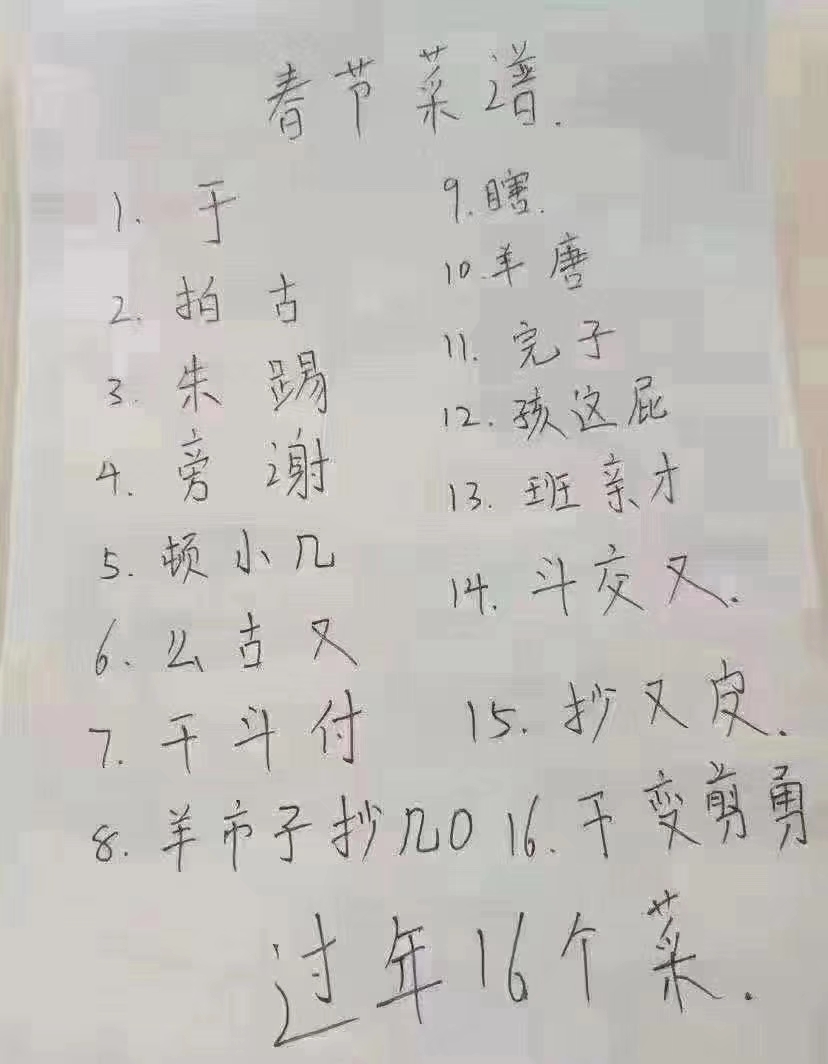 春节菜谱.
1. 于
2. 拍古
3. 朱踢
4. 旁谢
5. 顿小几
6. 么古又
7. 干斗付
8. 羊市子抄几0
9. 瞎.
10. 羊唐
11. 完子
12. 孩这屁
13. 班亲才
14. 斗交又.
15. 抄又皮.
16. 干变剪勇
过年16个菜.